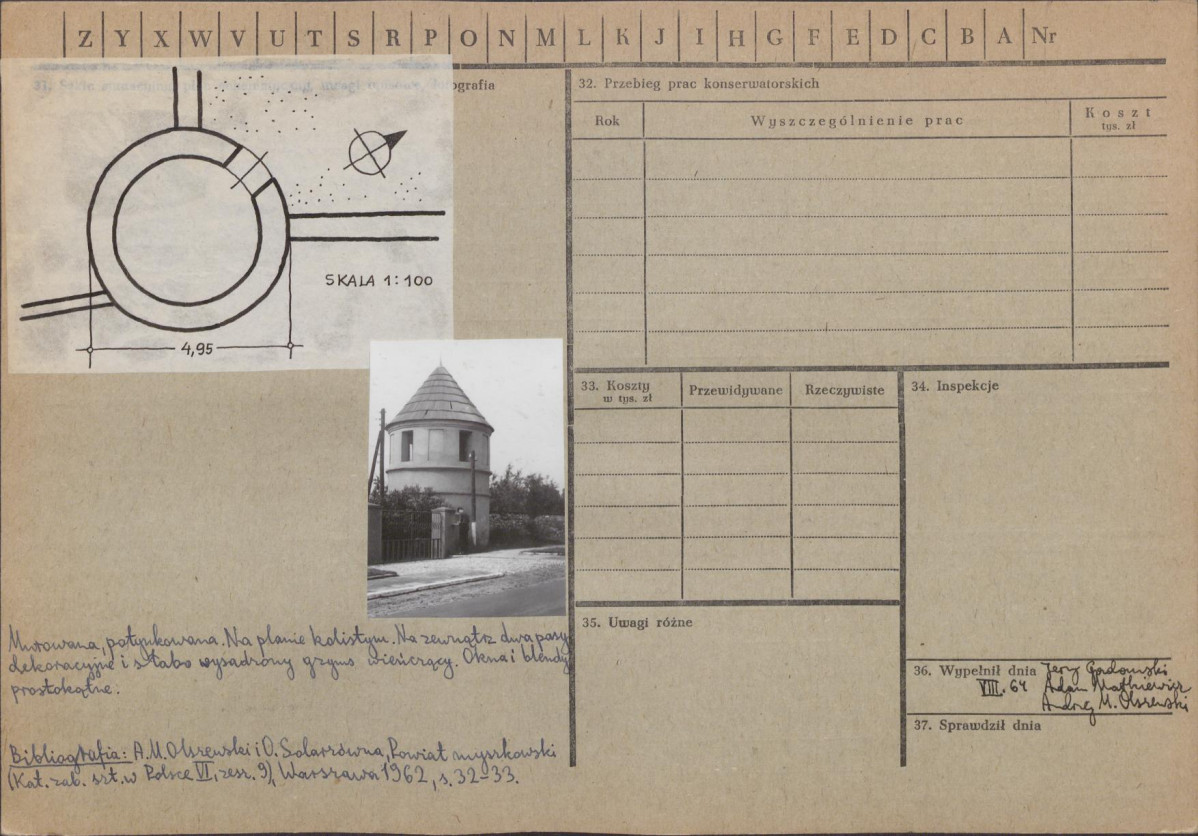 Z Y X W V U T S R P O N M L K J I H G F E D C B A Nr
31. fotografia
SKALA 1:100
4,95
Murowana, potynkowana. Na planie kolistym. Na zewnątrz dwa pasy
dekoracyjne i słabo wysadzony gzyms wieńczący. Okna i blendy
prostokątne.
Bibliografia: A.M. Olszewski i O. Solarzówna, Powiat myszkowski
(Kat. zab. szt. w Polsce VI, zesz. 9), Warszawa 1962, s. 32-33.
32. Przebieg prac konserwatorskich
Rok Wyszczególnienie prac Koszt
tys. zł
33. Koszty Przewidywane Rzeczywiste
w tys. zł
34. Inspekcje
35. Uwagi różne
36. Wypełnił dnia Jerzy Gadomski
VIII. 64 Adam Małkiewicz
Andrzej M. Olszewski
37. Sprawdził dnia